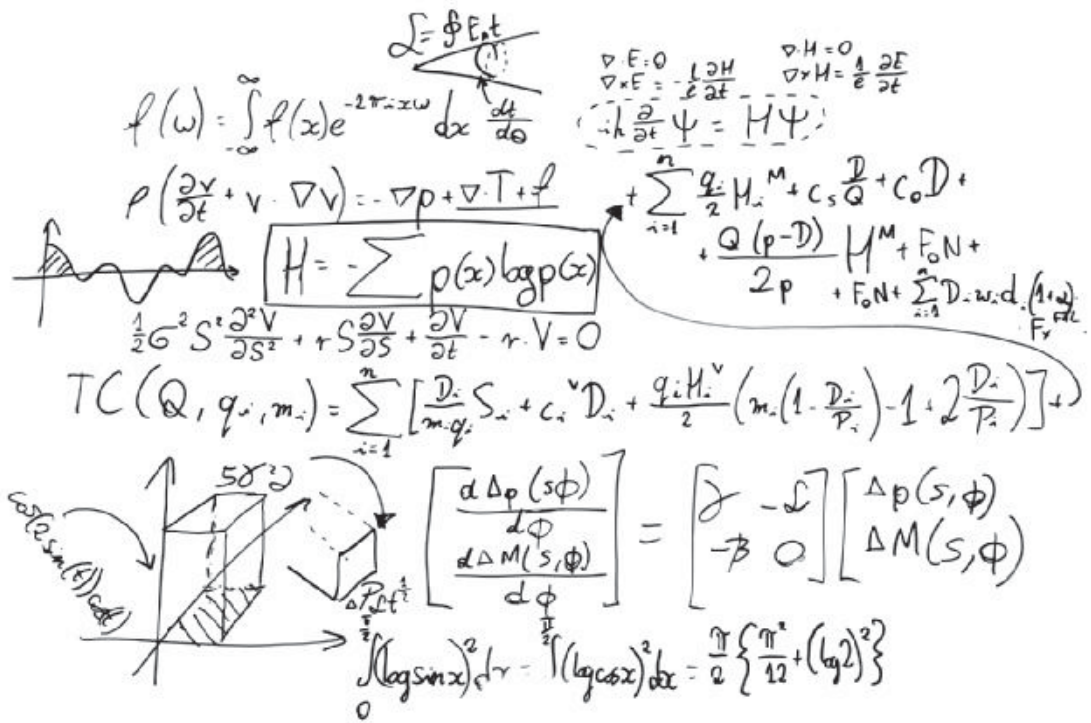 ℒ = ∮ E.t
∇·E=0   ∇·H=0
∇×E = -1/c ∂H/∂t   ∇×H = 1/c ∂E/∂t
f(ω) = ∫_{-∞}^{∞} f(x)e^{-2πixω} dx   dt/dθ
iħ ∂/∂t Ψ = HΨ
ρ(∂v/∂t + v·∇v) = -∇p + ∇·T + f
+ ∑_{i=1}^{n} q_i/2 H_i^M + c_s D/Q + c_o D +
+ Q(p-D)/2p H^M + F_o N +
H = -∑ p(x) log p(x)
+ F_o N + ∑_{i=1}^{n} D_i w_i d_i
1/2 σ² S² ∂²V/∂S² + r S ∂V/∂S + ∂V/∂t - r·V = 0
TC(Q, q_i, m_i) = ∑_{i=1}^{n} [D_i/(m_i q_i) S_i + c_i^v D_i + q_i H_i^v/2 (m_i(1 - D_i/P_i) - 1 + 2 D_i/P_i)] +
[dΔp(sϕ)/dϕ   dΔM(s,ϕ)/dϕ] = [γ -ℒ   -β 0] [Δp(s,ϕ)   ΔM(s,ϕ)
∫_0^{π/2} (log sin x)² dx = ∫^{π/2} (log cos x)² dx = π/2 {π²/12 + (log 2)²}